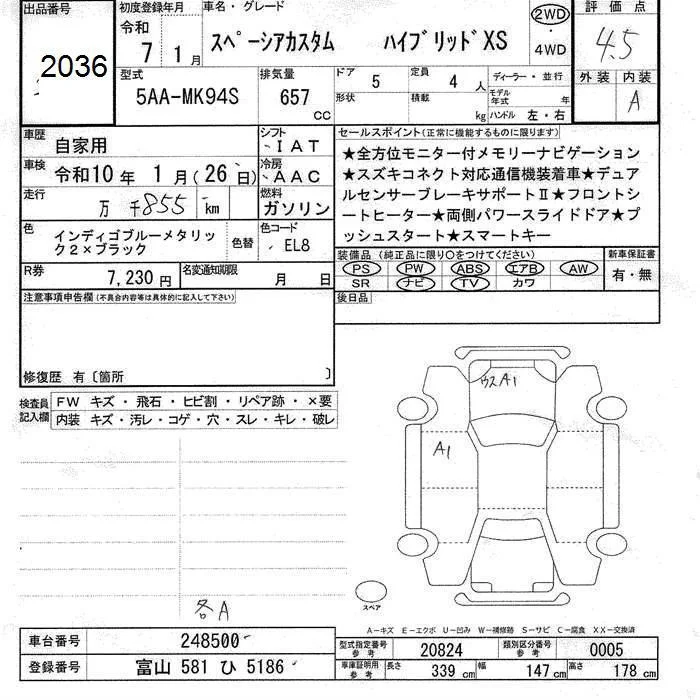 出品番号
2036
初度登録年月
令和
7 1 月
車名・グレード
スペーシアカスタム ハイブリッドXS
2WD
・
4WD
評価点
4.5
外装 内装
A
型式
5AA-MK94S
排気量
657
cc
ドア 5
定員 4 人
形状
積載 kg
ディーラー・並行
モデル年式 年
ハンドル 左・右
車歴
自家用
シフト
IAT
車検
令和10年 1月(26日)
冷房
AAC
走行
万 千855 km
燃料
ガソリン
色
インディゴブルーメタリッ
ク2×ブラック
色替
色コード
EL8
R券
7,230円
名変通知期限
月 日
セールスポイント(正常に機能するものに限ります)
★全方位モニター付メモリーナビゲーション
★スズキコネクト対応通信機装着車★デュア
ルセンサーブレーキサポートⅡ★フロントシ
ートヒーター★両側パワースライドドア★プ
ッシュスタート★スマートキー
装備品(純正品に限り○をつけてください)
PS PW ABS エアB AW
SR ナビ TV カワ
新車保証書
有・無
注意事項申告欄(不具合内容等は具体的に記入して下さい)
修復歴 有〔箇所 〕
後日品
検査員
記入欄
FW キズ・飛石・ヒビ割・リペア跡・×要
内装 キズ・汚レ・コゲ・穴・スレ・キレ・破レ
A1
A1
各A
スペア
A-キズ E-エクボ U-凹み W-補修跡 S-サビ C-腐食 XX-交換済
車台番号
248500
登録番号
富山 581 ひ 5186
型式指定番号
参考
20824
類別区分番号
参考
0005
車庫証明用
参考
長さ 339 cm
幅 147 cm
高さ 178 cm